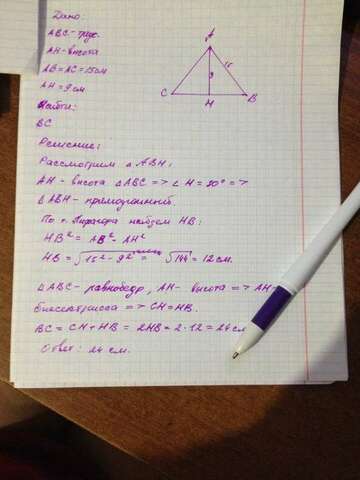 Дано:
ABC - треуг.
AH - высота
AB = AC = 15 см
AH = 9 см
Найти:
BC
Решение:
Рассмотрим △ ABH:
AH - высота △ABC => ∠ H = 90° =>
△ABH - прямоугольный.
По т. Пифагора найдем HB:
HB² = AB² - AH²
HB = √15² - 9² = √144 = 12 см.
△ABC - равнобедр, AH - высота => AH -
биссектрисса => CH = HB.
BC = CH + HB = 2HB = 2 · 12 = 24 см
Ответ: 24 см.
A
15
9
C
H
B